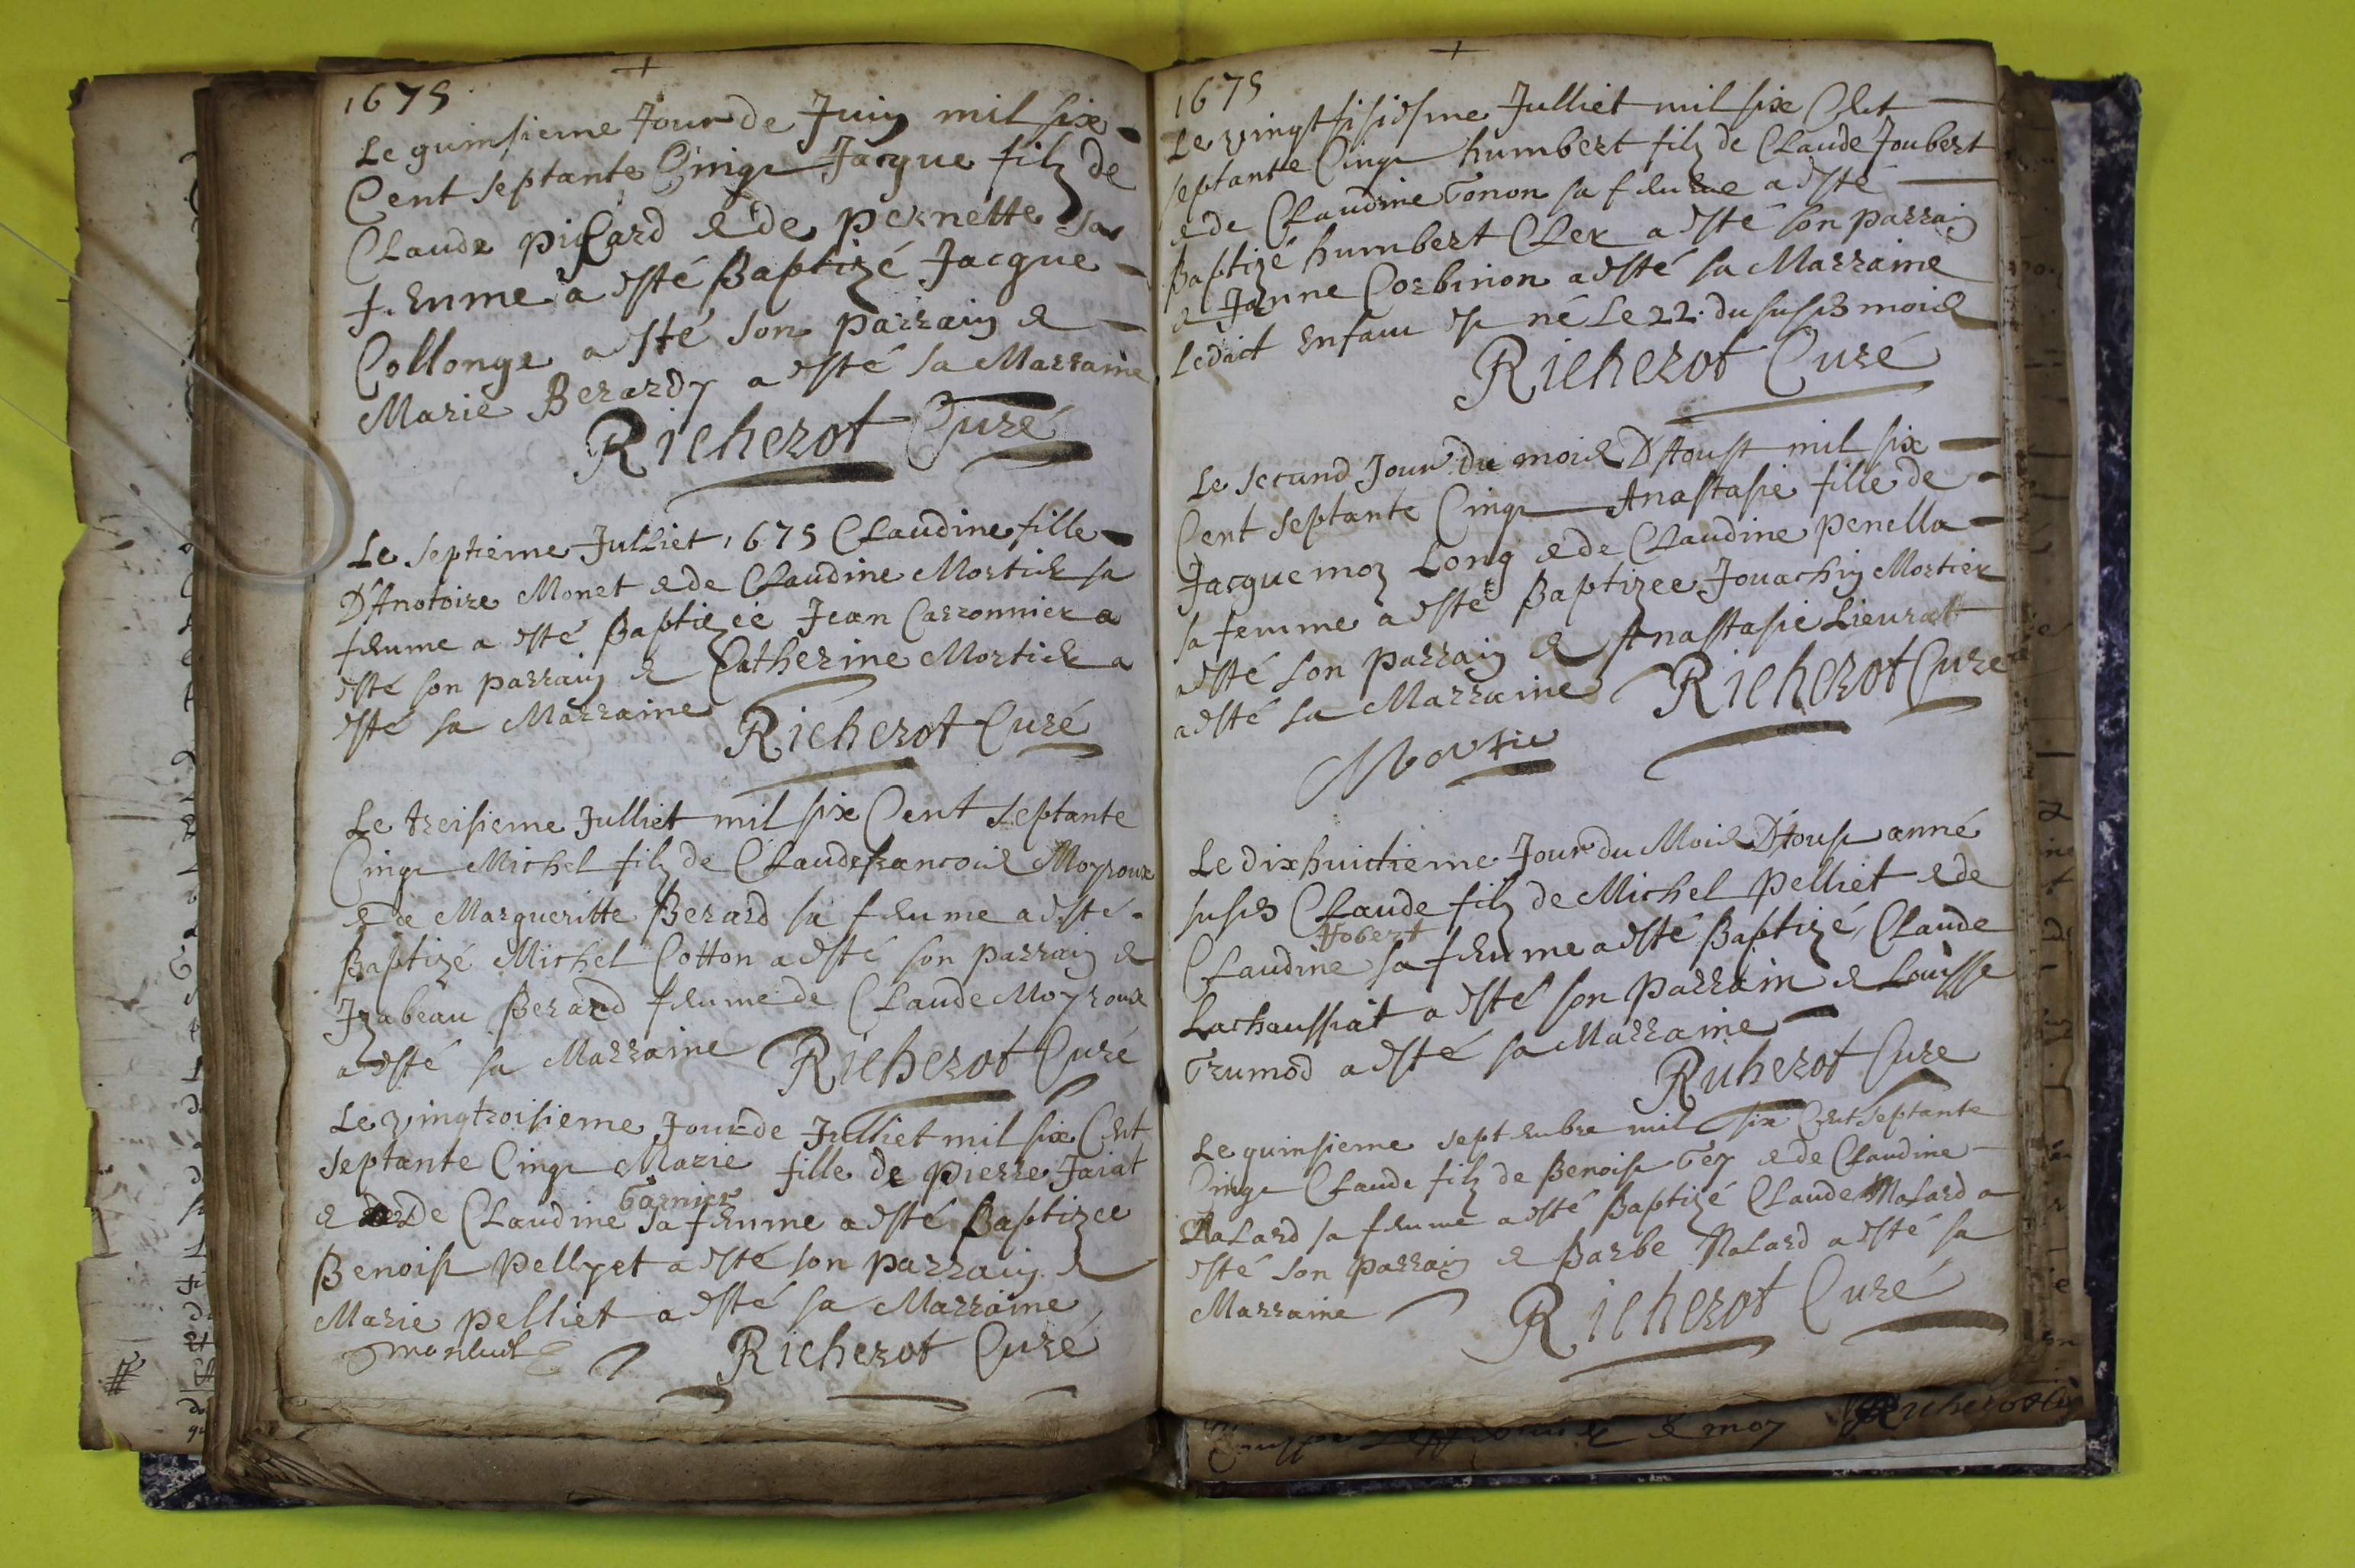 1675
Le quinsieme Jour de Juin mil six
Cent septante Cinqe Jacque filz de
Claude picard & de pernette sa
femme a esté Baptizé Jacque
Collonge a esté son parrain &
Marie Berardy a esté sa Marraine
Richerot Curé
Le septieme Julliet 1675 Claudine fille
D'Anotoire Monet & de Claudine Mortier sa
femme a esté Baptizéé Jean Carronnier a
esté son parrain & Catherine Mortier a
esté sa Marraine Richerot Curé
Le treisieme Julliet mil six Cent septante
Cinqe Michel filz de Claude francois Moyroux
& de Margueritte Berard sa femme a esté
Baptizé Michel Cotton a esté son parrain &
Izabeau Berard femme de Claude Moyroux
a esté sa Marraine Richerot Curé
Le vingtroisieme Jour de Julliet mil six Cent
septante Cinqe Marie fille de pierre Jaiat
Garnier
& de Claudine sa femme a esté Baptizee
Benoist Pellyet a esté son parrain &
Marie pelliet a esté sa Marraine
Richerot Curé
1675
Le vingt sisiesme Julliet mil six Cent
septante Cinqe humbert filz de Claude Joubert
& de Claudine Gonon sa femme a esté
Baptizé humbert Cler a esté son parrain
& Janne Corbinon a esté sa Marraine
Ledict enfant est né Le 22. du susd mois
Richerot Curé
Le second Jour du mois D'Aoust mil six
Cent septante Cinqe Anastasie fille de
Jacquemoz Long & de Claudine penella
sa femme a esté Baptizee Jouachin Mortier
a esté son parrain & Anastasie Lieurat
a esté sa Marraine Richerot Cure
Mortie
Le dix huictieme Jour du Mois D'Aoust anné
susd Claude filz de Michel Pelliet & de
Hobert
Claudine sa femme a esté Baptizé, Claude
Lachaussiat a esté son parrain & Louisse
Grumod a esté sa Marraine
Richerot Cure
Le quinsieme septembre mil six Cent septante
Cinqe Claude filz de Benoist Gey & de Claudine
Malard sa femme a esté Baptizé Claude Malard a
esté son parrain & Barbe Malard a esté sa
Marraine Richerot Curé
& moy Richerot